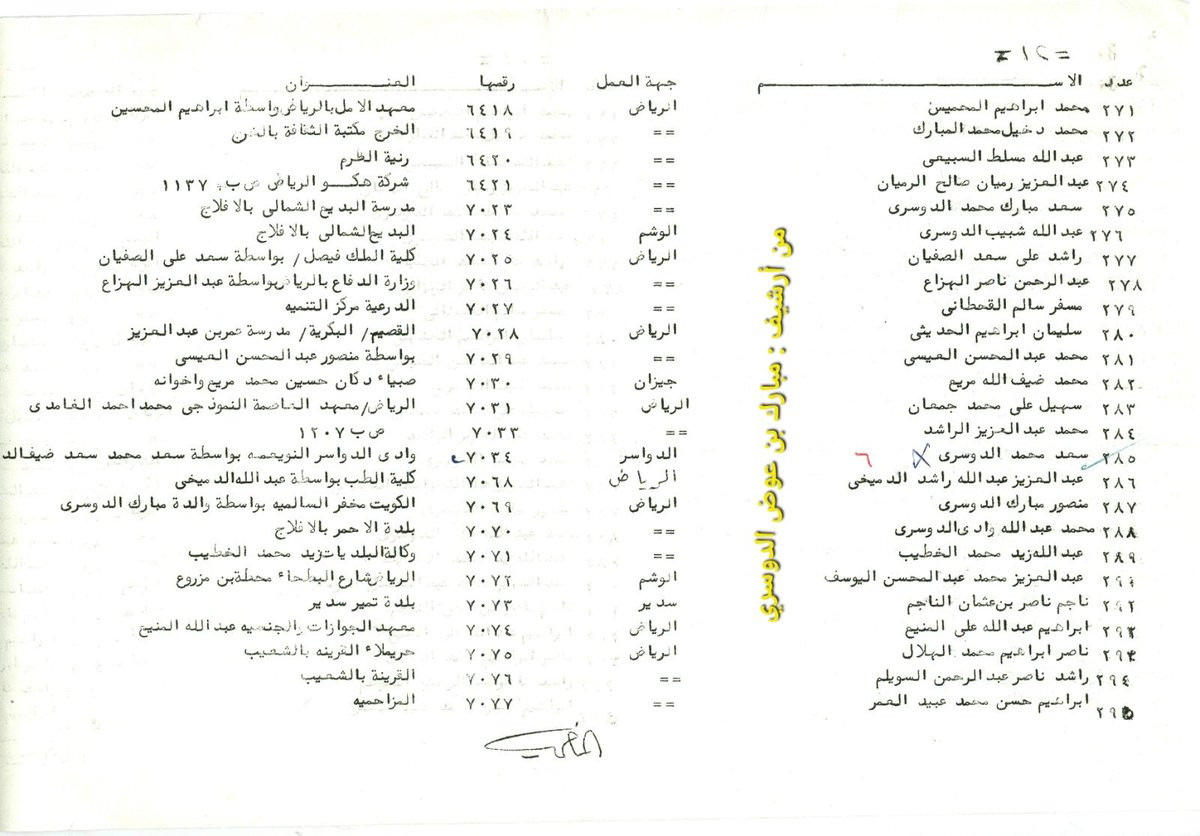 = ٢١ =
عدد الاســـم جهة العمل رقمها العنـــوان
٢٧١ محمد ابراهيم المحميس الرياض ٦٤١٨ معهد الامل بالرياض واسطة ابراهيم المحسين
٢٧٢ محمد دخيل محمد المبارك == ٦٤١٩ الخرج مكتبة الثقافة بالخرج
٢٧٣ عبد الله مسلط السبيعى == ٦٤٢٠ رنية الظرم
٢٧٤ عبد العزيز رميان صالح الرميان == ٦٤٢١ شركة هكـــو الرياض ص ب ١١٣٧
٢٧٥ سعد مبارك محمد الدوسرى == ٧٠٢٣ مدرسة البديع الشمالى بالافلاج
٢٧٦ عبد الله شبيب الدوسرى الوشم ٧٠٢٤ البديع الشمالى بالافلاج
٢٧٧ راشد على سعد الصفيان الرياض ٧٠٢٥ كلية الملك فيصل / بواسطة سعد على الصفيان
٢٧٨ عبد الرحمن ناصر الهزاع == ٧٠٢٦ وزارة الدفاع بالرياض بواسطة عبد العزيز الهزاع
٢٧٩ مسفر سالم القحطانى == ٧٠٢٧ الدرعية مركز التنميه
٢٨٠ سليمان ابراهيم الحديثى الرياض ٧٠٢٨ القصيم / البكرية / مدرسة عمر بن عبد العزيز
٢٨١ محمد عبد المحسن العيسى == ٧٠٢٩ بواسطة منصور عبد المحسن العيسى
٢٨٢ محمد ضيف الله مريع جيزان ٧٠٣٠ صبياء دكان حسين محمد مريع واخوانه
٢٨٣ سهيل على محمد جمعان الرياض ٧٠٣١ الرياض / معهد العاصمة النموذجى محمد احمد الغامدى
٢٨٤ محمد عبد العزيز الراشد == ٧٠٣٣ ص ب ١٢٠٧
٢٨٥ سعد محمد الدوسرى ٦ الدواسر ٧٠٣٤ وادى الدواسر النويعمه بواسطة سعد محمد سعد ضيفالد
٢٨٦ عبد العزيز عبد الله راشد الدميخى الرياض ٧٠٦٨ كلية الطب بواسطة عبد الله الدميخى
٢٨٧ منصور مبارك الدوسرى الرياض ٧٠٦٩ الكويت مخفر السالميه بواسطة والدة مبارك الدوسرى
٢٨٨ محمد عبد الله وادى الدوسرى == ٧٠٧٠ بلدة الاحمر بالافلاج
٢٨٩ عبد الله زيد محمد الخطيب == ٧٠٧١ وكالة البلديات زيد محمد الخطيب
٢٩١ عبد العزيز محمد عبد المحسن اليوسف الوشم ٧٠٧٢ الرياض شارع البطحاء محطة بن مزروع
٢٩٢ ناجم ناصر بن عثمان الناجم سدير ٧٠٧٣ بلدة تمير سدير
٢٩٣ ابراهيم عبد الله على المنيع الرياض ٧٠٧٤ معهد الجوازات والجنسيه عبد الله المنيع
٢٩٤ ناصر ابراهيم محمد الهلال الرياض ٧٠٧٥ حريملاء القرينه بالشعيب
٢٩٤ راشد ناصر عبد الرحمن السويلم == ٧٠٧٦ القرينة بالشعيب
٢٩٥ ابراهيم حسن محمد عبيد العمر == ٧٠٧٧ المزاحميه
من أرشيف : مبارك بن عوض الدوسري